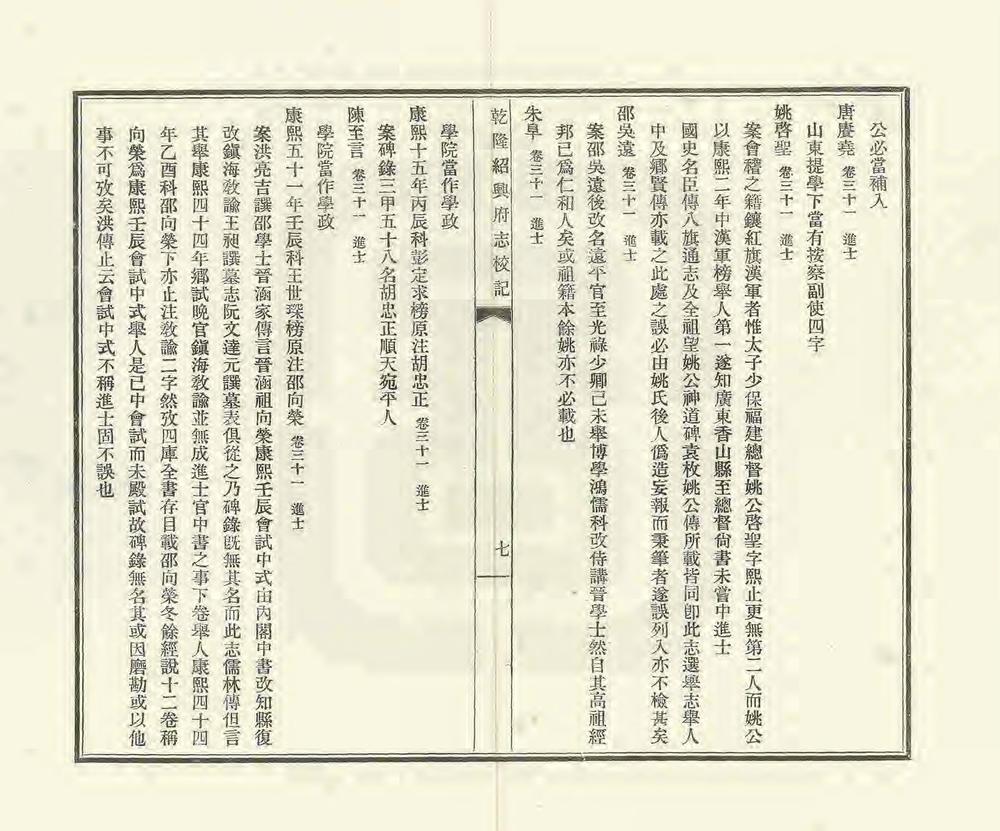 公必當補入
唐賡堯 卷三十一 進士
山東提學下當有按察副使四字
姚啓聖 卷三十一 進士
案會稽之籍鑲紅旗漢軍者惟太子少保福建總督姚公啓聖字熙止更無第二人而姚公
以康熙二年中漢軍榜舉人第一遂知廣東香山縣至總督尙書未嘗中進士
國史名臣傳八旗通志及全祖望姚公神道碑袁枚姚公傳所載皆同卽此志選舉志舉人
中及鄉賢傳亦載之此處之誤必由姚氏後人僞造妄報而秉筆者遂誤列入亦不檢甚矣
邵吳遠 卷三十一 進士
案邵吳遠後改名遠平官至光祿少卿己未舉博學鴻儒科改侍講晉學士然自其高祖經
邦已爲仁和人矣或祖籍本餘姚亦不必載也
朱阜 卷三十一 進士
乾隆紹興府志校記
七
學院當作學政
康熙十五年丙辰科彭定求榜原注胡忠正 卷三十一 進士
案碑錄三甲五十八名胡忠正順天宛平人
陳至言 卷三十一 進士
學院當作學政
康熙五十一年壬辰科王世琛榜原注邵向榮 卷三十一 進士
案洪亮吉譔邵學士晉涵家傳言晉涵祖向榮康熙壬辰會試中式由內閣中書改知縣復
改鎮海敎諭王昶譔墓志阮文達元譔墓表俱從之乃碑錄旣無其名而此志儒林傳但言
其舉康熙四十四年鄉試晩官鎮海敎諭並無成進士官中書之事下卷舉人康熙四十四
年乙酉科邵向榮下亦止注敎諭二字然攷四庫全書存目載邵向榮冬餘經說十二卷稱
向榮爲康熙壬辰會試中式舉人是已中會試而未殿試故碑錄無名其或因磨勘或以他
事不可攷矣洪傳止云會試中式不稱進士固不誤也